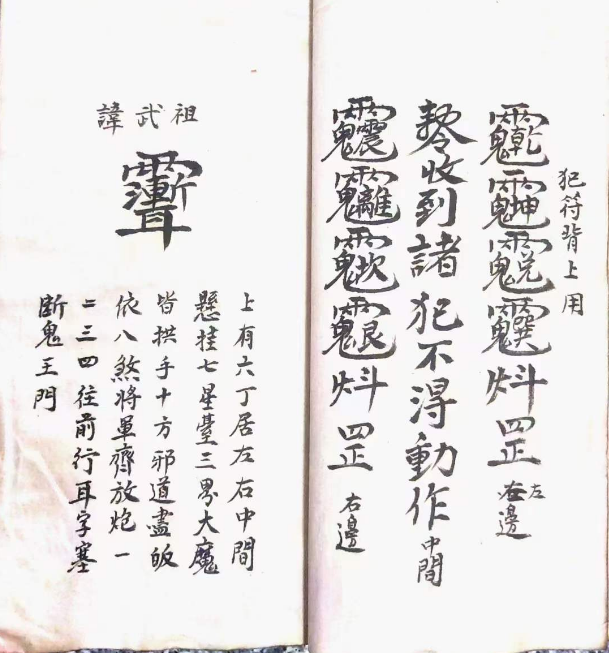 犯符背上用
炓罡左邊
收到諸犯不淂動作中間
炓罡右邊
祖武諱
上有六丁居左右中間
懸挂七星臺三界大魔
皆拱手十方邪道盡皈
依八煞將軍齊放炮一
二三四往前行耳字塞
断鬼王門